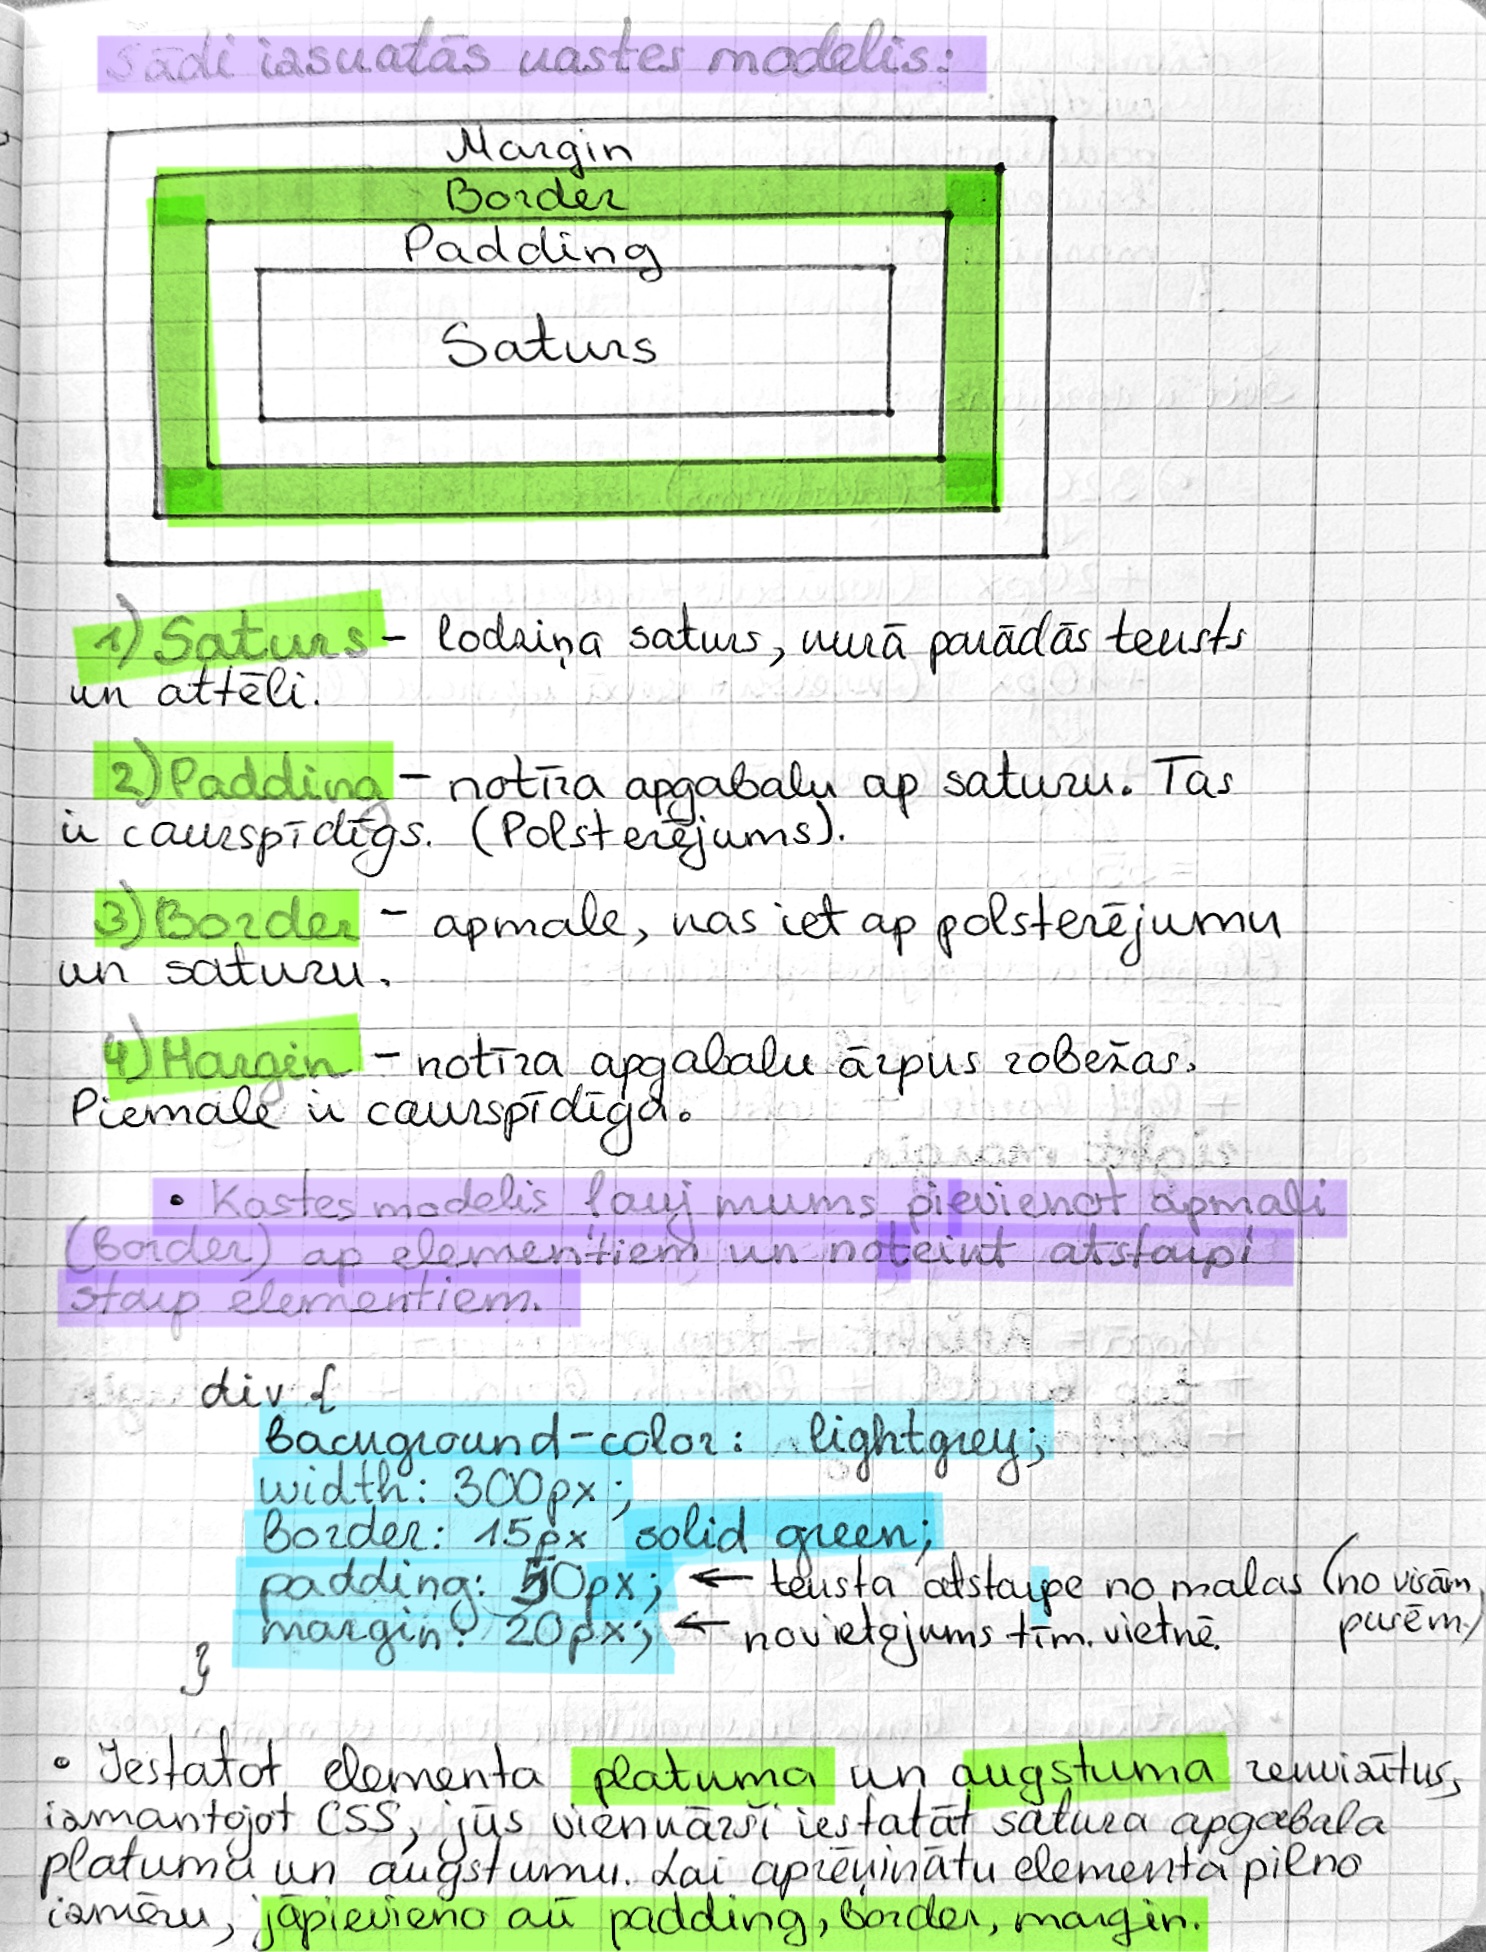 Šādi izskatās kastes modelis:
Margin
Border
Padding
Saturs
1) Saturs – lodziņa saturs, kurā parādās teksts
un attēli.
2) Padding – notīra apgabalu ap saturu. Tas
ir caurspīdīgs. (Polsterējums).
3) Border – apmale, kas iet ap polsterējumu
un saturu.
4) Margin – notīra apgabalu ārpus robežas.
Piemale ir caurspīdīga.
• Kastes modelis ļauj mums pievienot apmali
(Border) ap elementiem un noteikt atstarpi
starp elementiem.
div {
background-color: lightgrey;
width: 300px;
Border: 15px solid green;
padding: 50px; ← teksta atstarpe no malas (no visām
pusēm)
margin: 20px; ← novietojums tīm. vietnē.
}
• Iestatot elementa platuma un augstuma rekvizītus,
izmantojot CSS, jūs vienkārši iestatāt satura apgabala
platumu un augstumu. Lai aprēķinātu elementa pilno
izmēru, jāpievieno arī padding, border, margin.